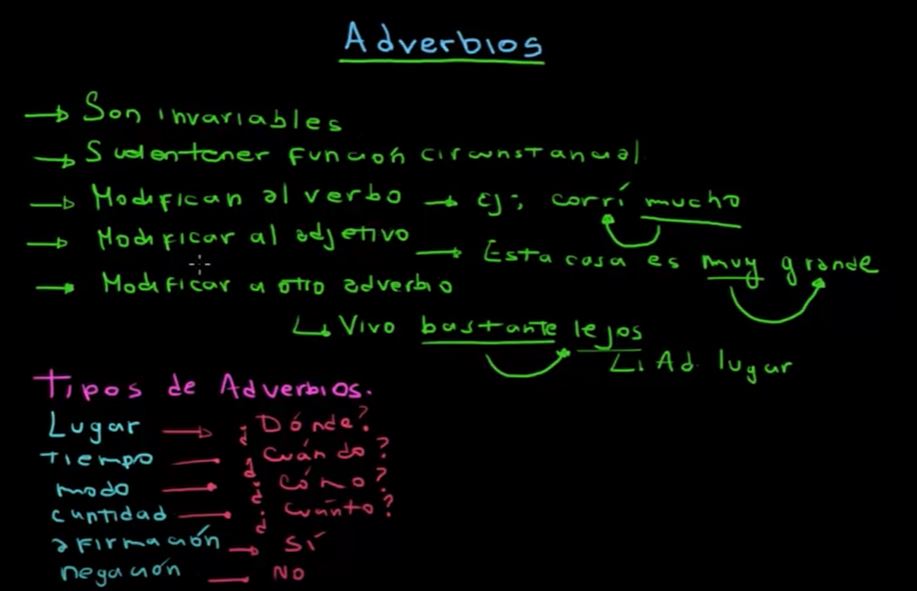 Adverbios
→ Son invariables
→ Suelen tener función circunstancial
→ Modifican al verbo → Ej: corrí mucho
→ Modificar al adjetivo → Esta casa es muy grande
→ Modificar a otro adverbio
↳ Vivo bastante lejos
↳ Ad. lugar
Tipos de Adverbios.
Lugar → ¿Dónde?
Tiempo → ¿Cuándo?
modo → ¿Cómo?
cantidad → ¿Cuánto?
afirmación → SÍ
negación — NO